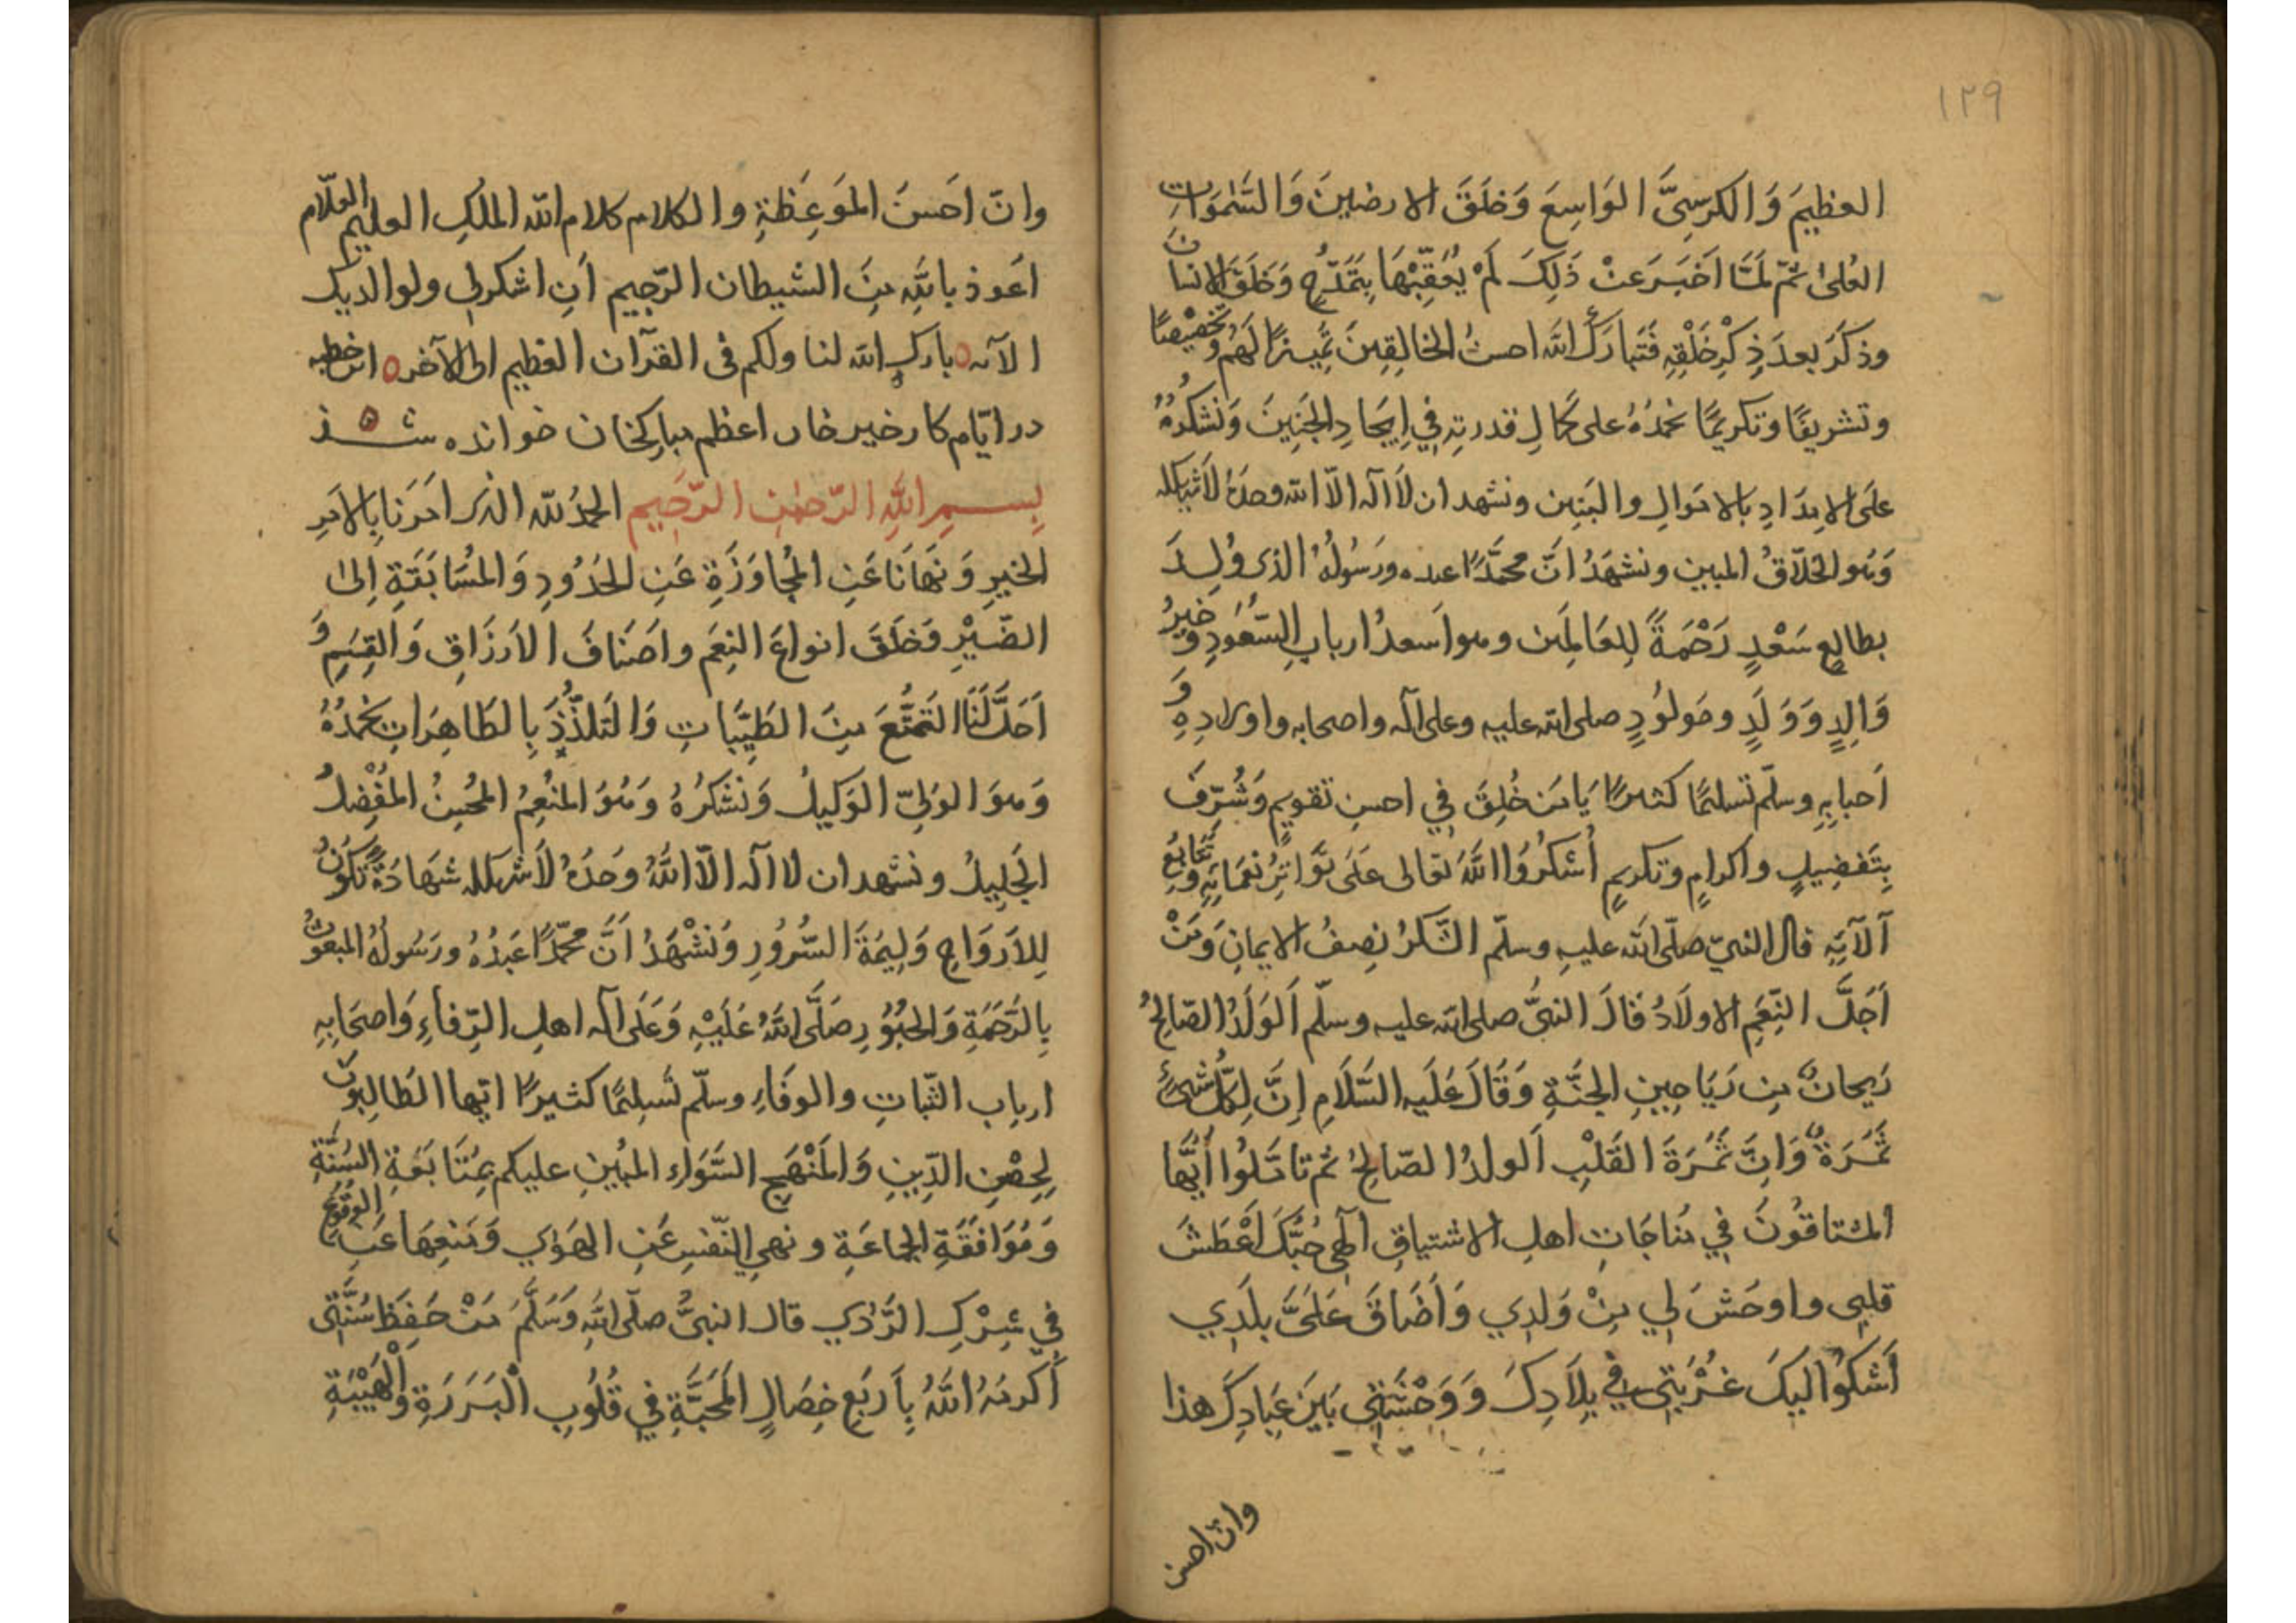 ١٢٩
العظيمَ وَالكرسِىَّ الوَاسِعَ وَخلَقَ الارضينَ وَالسَّمٰوَاتِ
العُلىٰ ثمّ لمَّا اَخبَرَ عَنْ ذَلِكَ لَمْ يُعَقِّبْهَا بِتَمَدُّحٍ وَخَلَقَ الانسانَ
وذكَرَ بعدَ ذِكْرِ خَلْقِهِ فَتَبارَكَ اللهُ احسنُ الخالِقِينَ تمييزًا لَهُمْ وتخصِيْصًا
وتشريفًا وتكريمًا نحمَدُهُ على كمالِ قدرتِهِ فِي اِيجَادِ الجَنِينَ وَنَشكُرُهُ
علَى الامدَادِ بالاموَالِ والبَنِين ونشهد ان لَا اله الّا الله وحدَهُ لَا شريك له
وَهُو الخلّاقُ المبين ونشهَدُ انَّ محمَّدًا عبده ورَسُولُهُ الذى وُلِدَ
بطالعٍ سَعْدٍ رَحْمَةً لِلعَالمَين وهو اَسعدُ اربابِ السُّعُودِ وَخيرُ
وَالِدٍ وَوَلَدٍ ومَولُودٍ صلى الله عليه وعلى آله واصحابه واولادِهِ وَ
اَحبابِهِ وسلّم تسليمًا كثيرًا يَا مَن خُلِقَ فِي احسنِ تقويمٍ وَشُرِّفَ
بِتَفضِيلٍ واكرامٍ وتكريمٍ اُشكُرُوا اللهَ تعالى عَلَى تَوَاتِرُ نعمَايَهِ وَتَتَابُعِ
آلآيَهِ قال النبيّ صلّى الله عليهِ وسلّم الشّكرُ نِصفُ الايمانِ وَمَنْ
اَجَلَّ النِّعَمِ الاولَادُ قَالَ النبىُّ صلى الله عليه وسلّم اَلوَلَدُ الصّالحُ
رَيحانٌ مِن رَيَاحِينِ الجنَّةِ وَقَالَ عَلَيهِ السَّلَامِ اِنَّ لِكُلِّ شىءٍ
ثَمَرَةٌ وَانَّ ثَمَرَةَ القَلْبِ اَلولدُ الصّالِحُ ثم تاملُوا اَيُّهَا
المشتاقُونَ فِي مُناجَاتِ اهلِ الاشتياقِ الٰهِى حُبُّكَ اَعْطَشَ
قلبِي واوحَشَ لِي مِنْ وَلدِي وَاَضَاقَ عَلَىَّ بلَدِي
اَشكوُا اليكَ غُرْبَتِى فِي بِلَادِكَ وَوَحْشَتِى بَينَ عِبَادِكَ هذا
وانّ احسن
وانّ اَحسَنَ المَوَعِظَةِ والكلام كلام الله الملكِ العليم العلّام
اَعوذ باللهِ مِنَ الشيطان الرّجيم اَنِ اشكرلى ولوالديك
الآيه بارك الله لنا ولكم فى القرآن العظيم الى الآخره اين خطبه
در ايّام كار خير خان اعظم مباركخان خوانده شد
بِسمِ اللهِ الرّحمٰنِ الرّحَيمِ الحمدُ للّه الذى اَمَرَنَا بِالامَرِ
الخيرِ وَنَهَانَا عَنِ المُجَاوَزَةِ عَنِ الحُدُودِ وَالمسُابَقَةِ اِلىٰ
الضَّيْرِ وَخَلَقَ انواعَ النِعَم واَصنَافَ الاَرزَاقِ وَالقِسَمِ وَ
اَحَلَّ لَنَا التَمتُّعَ مِنَ الطَيِّبَاتِ وَالتَلذُّذَ بِالطَاهِرَاتِ نحمَدُهُ
وَهوَ الوَلىّ الوَكيلُ وَنَشكرُهُ وَهُوَ المنُعِمُ المحُسِنُ المُفْضِلُ
الجَلِيلُ ونشهد ان لا اله الّا اللهُ وَحدَهُ لَا شريك له شهَادَةً تكُونُ
لِلاَروَاحِ وَلِيمَةَ السُّرُورِ وَنَشْهَدُ اَنَّ محمّدًا عَبدُهُ ورَسُولُهُ المبعُوثُ
بِالرَّحمَةِ وَالحُبُوُرِ صَلَّى اللهُ عَلَيْهِ وَعَلَى آله اهلِ الرِّفاءِ وَاصحَابِهِ
اربابِ الثّباتِ والوفَاءِ وسلّم تَسليمًا كثيرًا ايّها الطَالِبوُنَ
لِحِصْنِ الدّينِ وَالمَنْهَجِ السَّوَاءِ المبُينِ عليكم بمُتَابَعَةِ السُنَّةِ
وَمُوَافَقَةِ الجماعَةِ ونهىِ النّفسِ عَنِ الهَوٰي وَمَنعِهَا عَنِ الوقُوعِ
فِي شِرْكِ الرَّدٰي قال النبىُّ صلّى اللهُ وَسَلَّمَ مَنْ حَفِظَ سُنَّتِى
اَكرمَهُ اللهُ بِاَربَعِ خِصَالٍ المَحَبَّةِ فِي قُلُوبِ الْبَرَرَةِ وَالْهَيْبَةِ